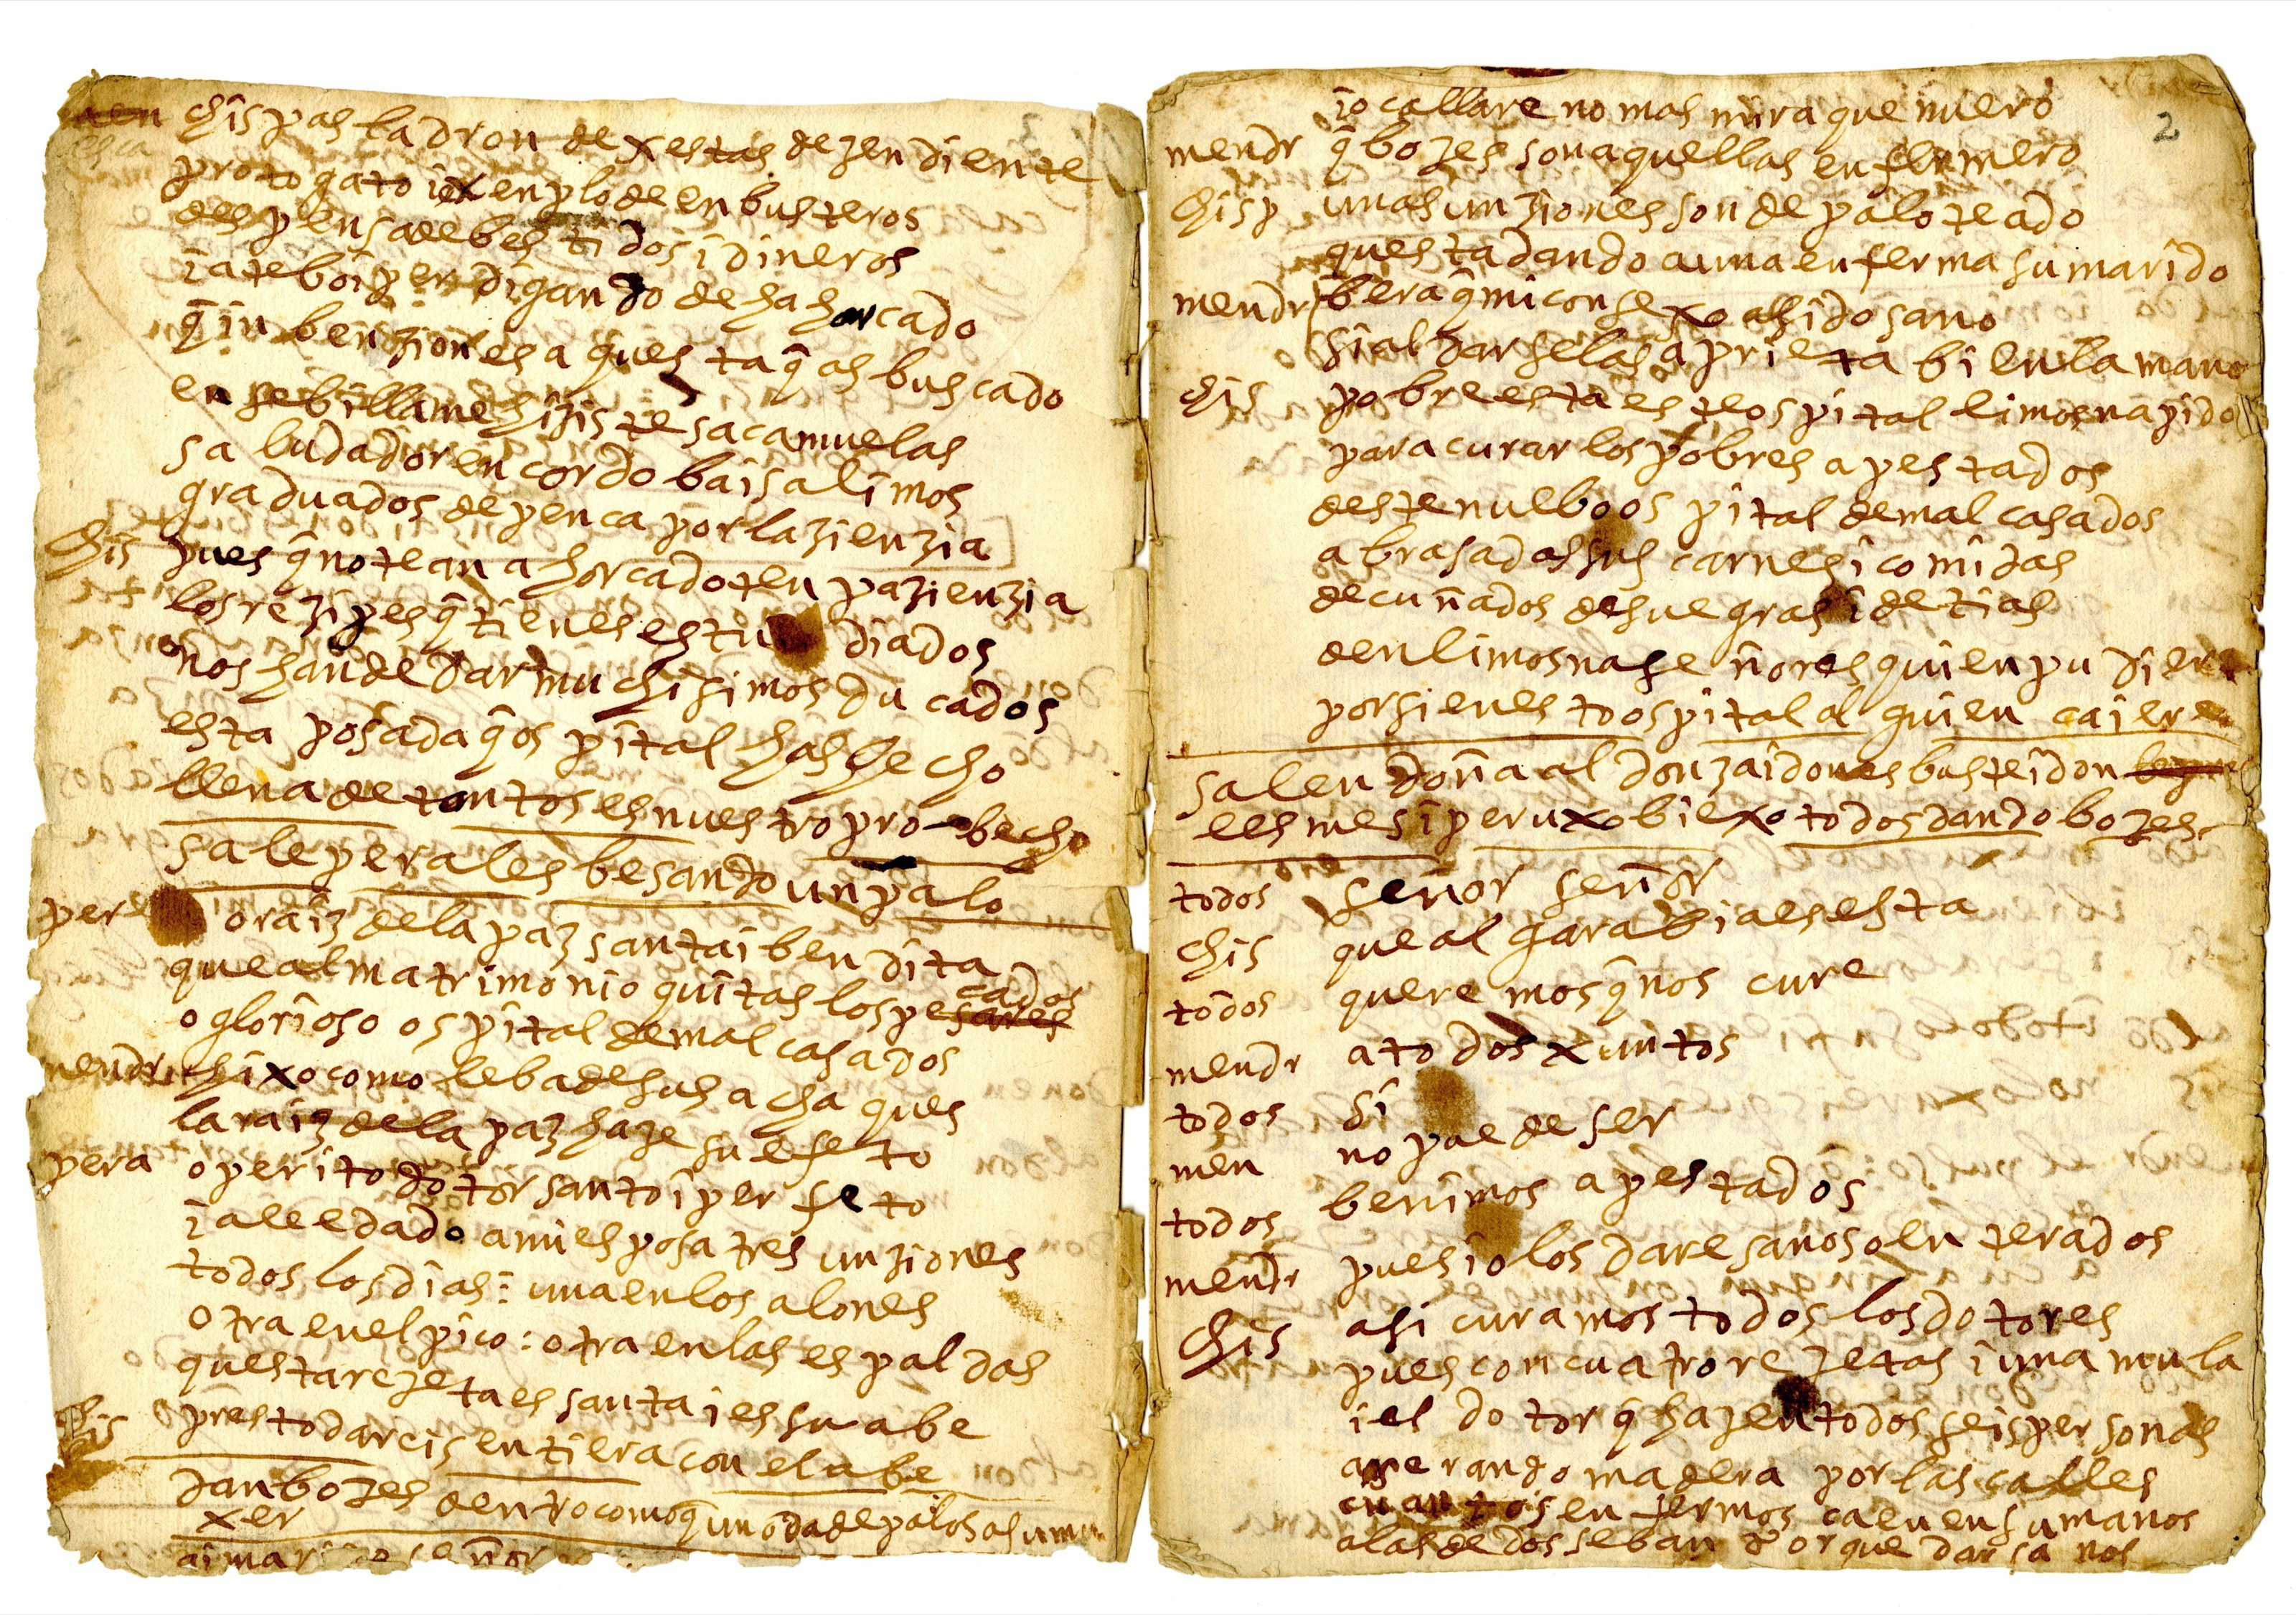 chispas ladron de xestas dezendiente
protogato i exenplo de enbusteros
despensa de bestidos i dineros
ia te boi perdigando de hahorcado
q̂ inbenziones a q̂uesta q̂ as buscado
en sebilla me hiziste sacamuelas
saludador en cordoba i salimos
graduados de penca por la zienzia
chis pues q̂ no te an ahorcado ten pazienzia
los rezipes q̂ tienes estudiados
nos han de dar muchisimos ducados
esta posada q̂ ospital has hecho
llena de tontos es nuestro probecho
sale perales besando un palo
per o raiz de la paz santa i bendita
que al matrimonio quitas los pesares cados
o glorioso ospital de mal casados
mendr hixo como le ba de sus acha ques
la raiz de la paz haze su efeto
pera o perito dotor santo i perfeto
ia le e dado a mi esposa tres unziones
todos los dias: una en los alones
otra en el pico: otra en las espaldas
questa rezeta es santa i es suabe
chis presto dareis en tiera con el abe
dan bozes dentro como q̂ uno da de palos a su
xer
ai marido señor
2
io callare no mas mira que muero
mendr q̂ bozes son aquellas enfermero
chisp unas unziones son de paloteado
questa dando a una enferma su marido
mendr bera q̂ mi consexo a sido sano
si al darselas aprieta bien la mano
chis pobre esta este ospital limosna pido
para curar los pobres apestados
deste nuebo ospital de mal casados
abrasadas sus carnes i comidas
de cuñados de suegras i de tias
den limosna señores quien pudiere
por si en esto ospital al quien caiere
salen doña aldonza i dones busteidon
lesmes i peruxo biexo todos dando bozes
todos señor señor
chis que algarabia es esta
todos queremos q̂ nos cure
mendr a todos xuntos
todos si
men no pue de ser
todos benimos apestados
mendr pues io los dare sanos o en terados
chis asi curamos todos los dotores
pues con cuatro rezetas i una mula
i el dotor q̂ hazen todos seis personas
aserando madera por las calles
cuantos enfermos caen en su manos
a las de dos se ban por que dar sanos